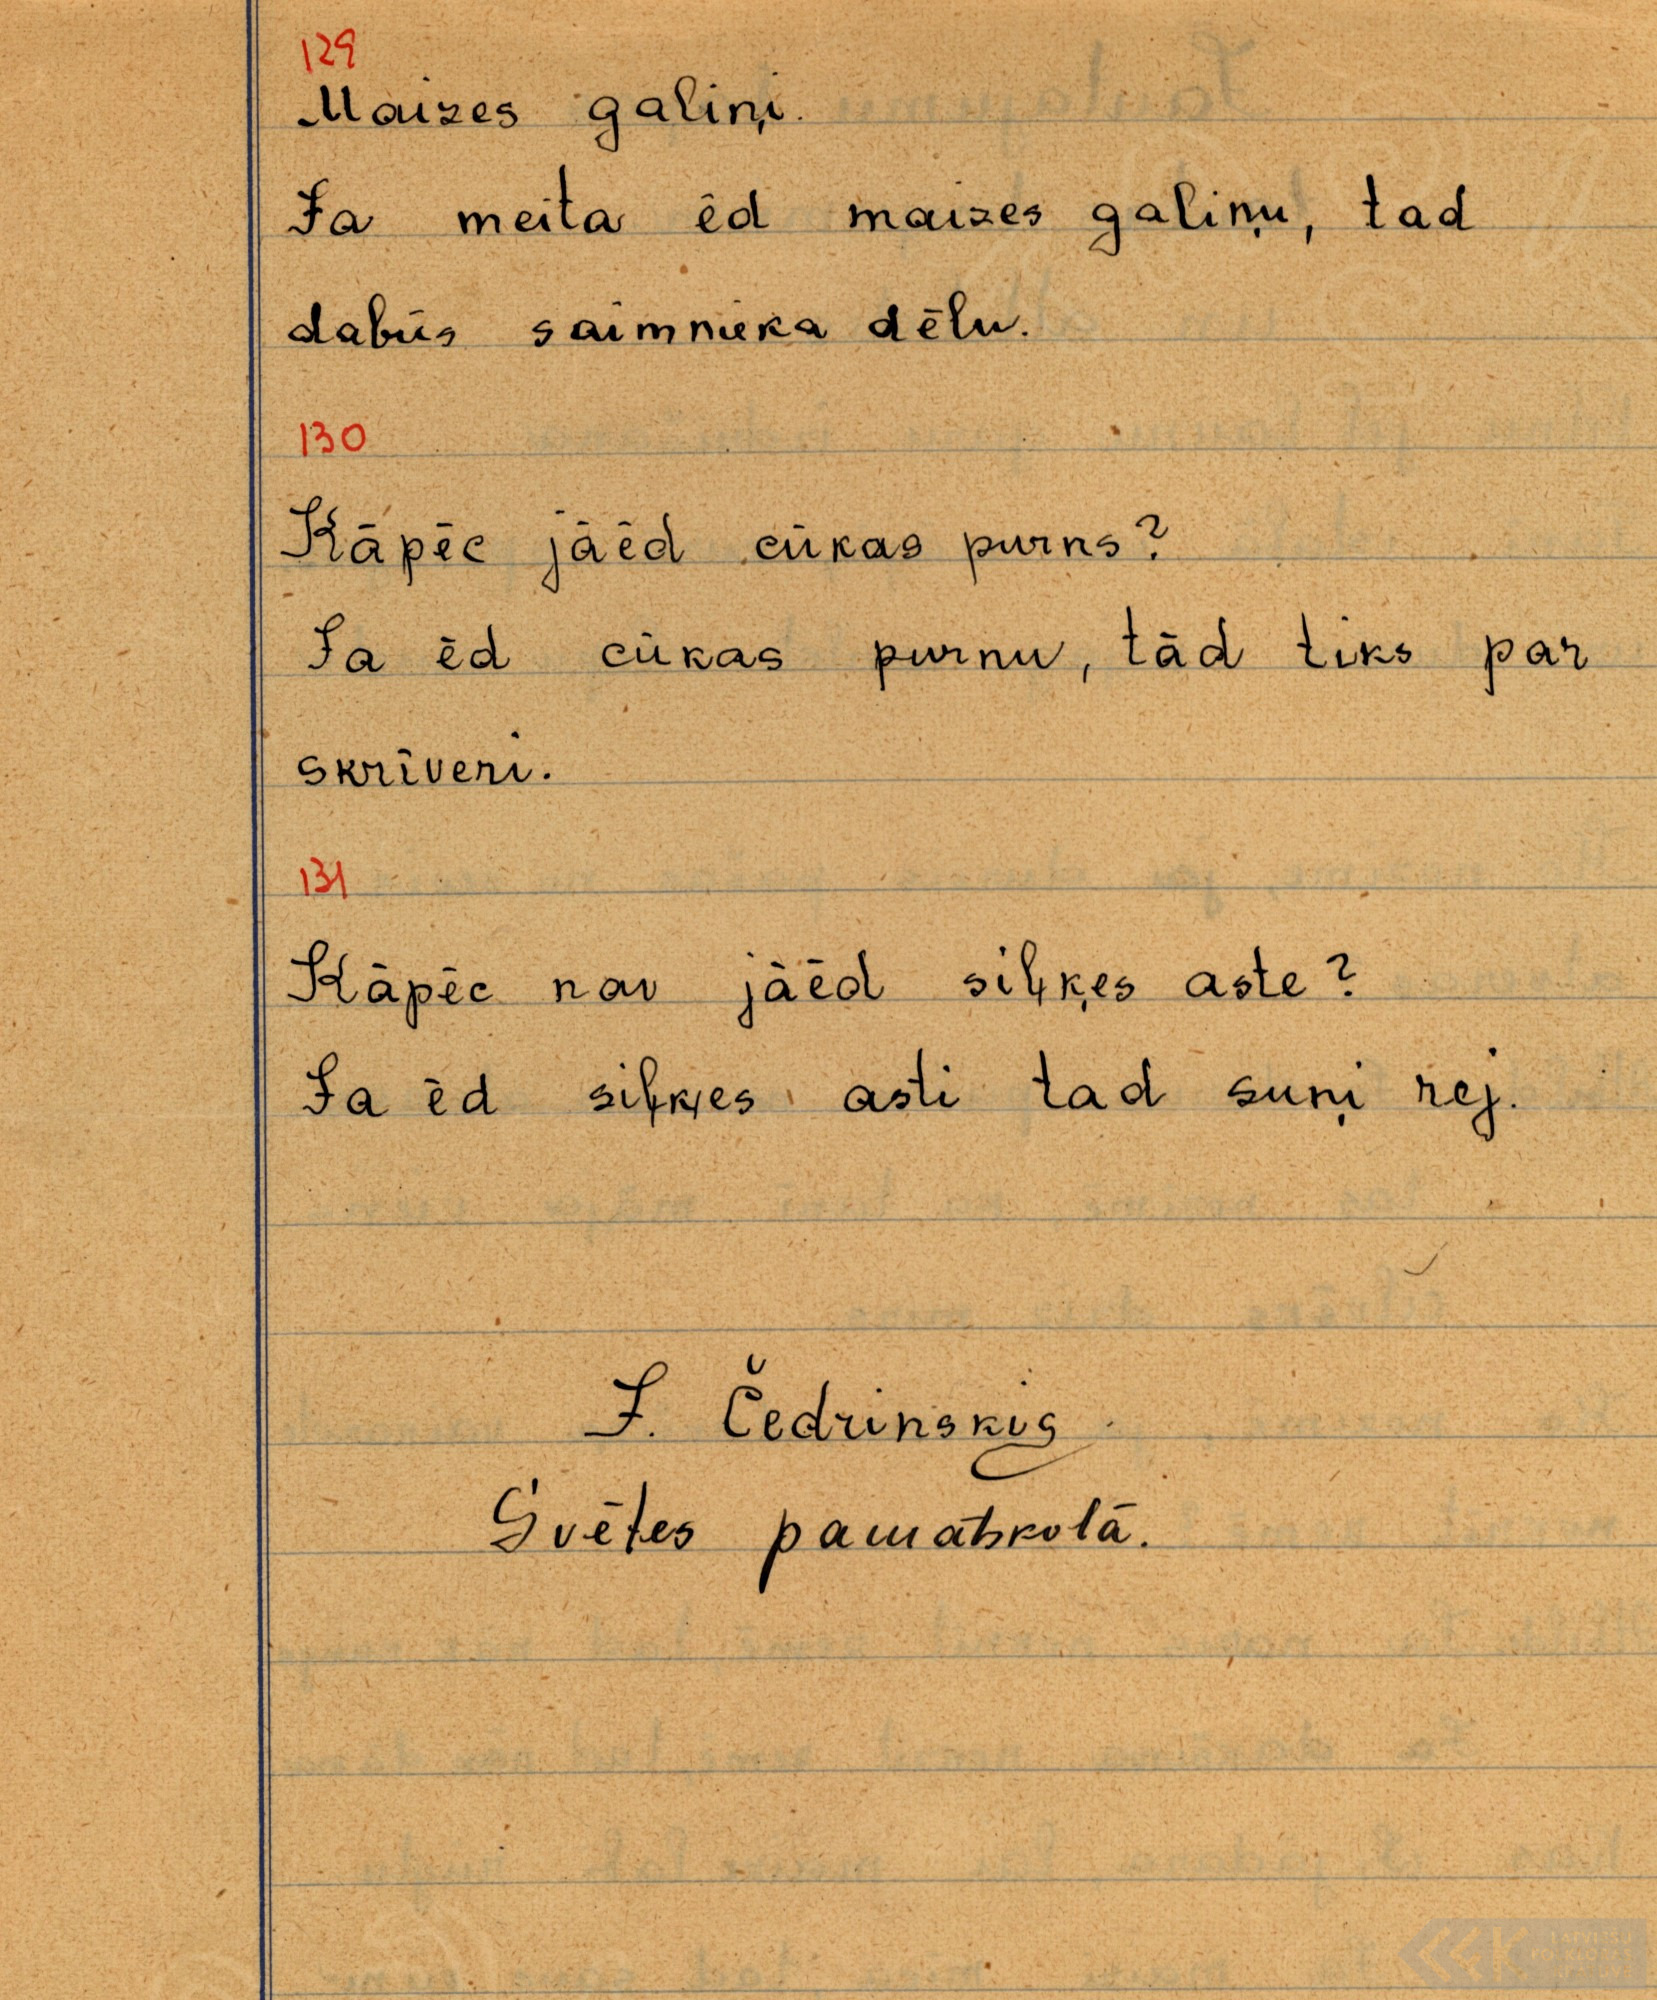 129
Maizes galiņi.
Ja meita ēd maizes galiņu, tad
dabūs saimnieka dēlu.
130
Kāpēc jāēd cūkas purns?
Ja ēd cūkas purnu, tād tiks par
skrīveri.
131
Kāpēc nav jāēd siļķes aste?
Ja ēd siļķes asti tad suņi rej.
J. Čedrinskis
Svētes pamatskolā.